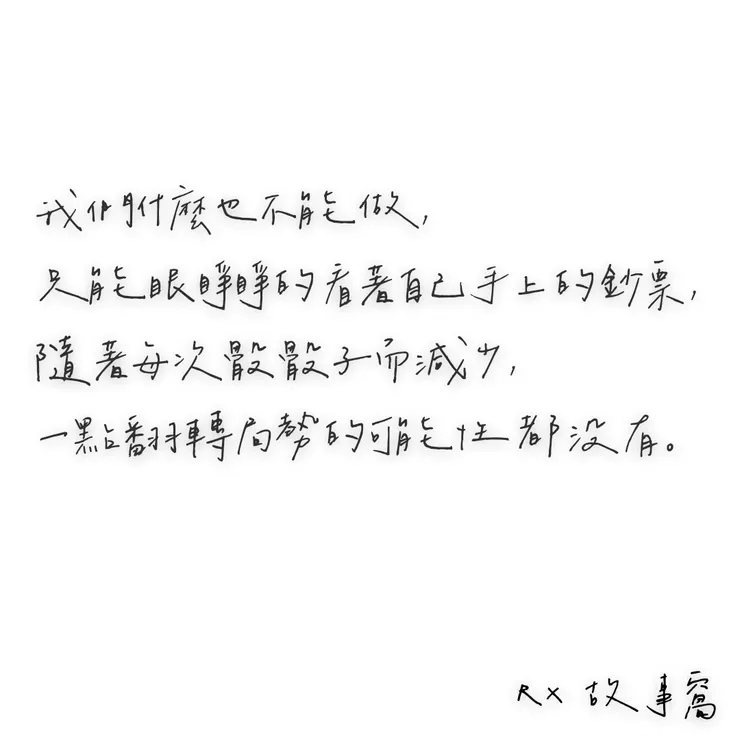 我們什麼也不能做,
只能眼睜睜的看著自己手上的鈔票,
隨著每次骰骰子而減少,
一點翻轉局勢的可能性都沒有。
RX 故事窩